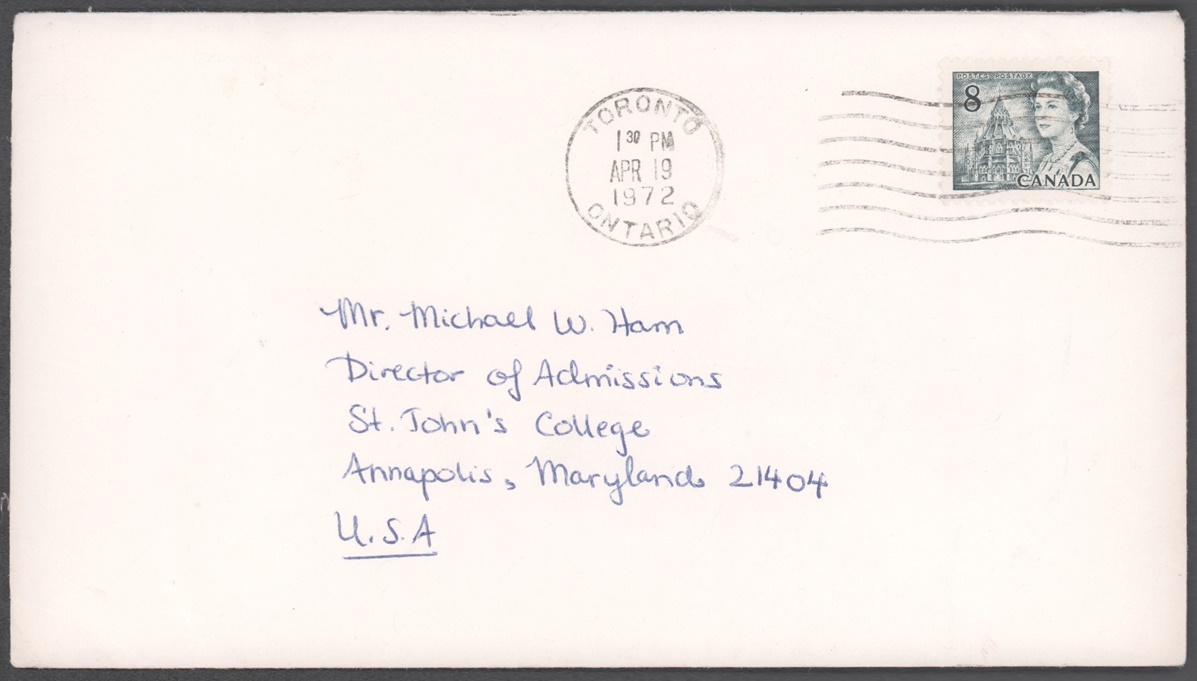 POSTES POSTAGE
8
CANADA
TORONTO
1 30 PM
APR 19
1972
ONTARIO
Mr. Michael W. Ham
Director of Admissions
St. John's College
Annapolis, Maryland 21404
U.S.A